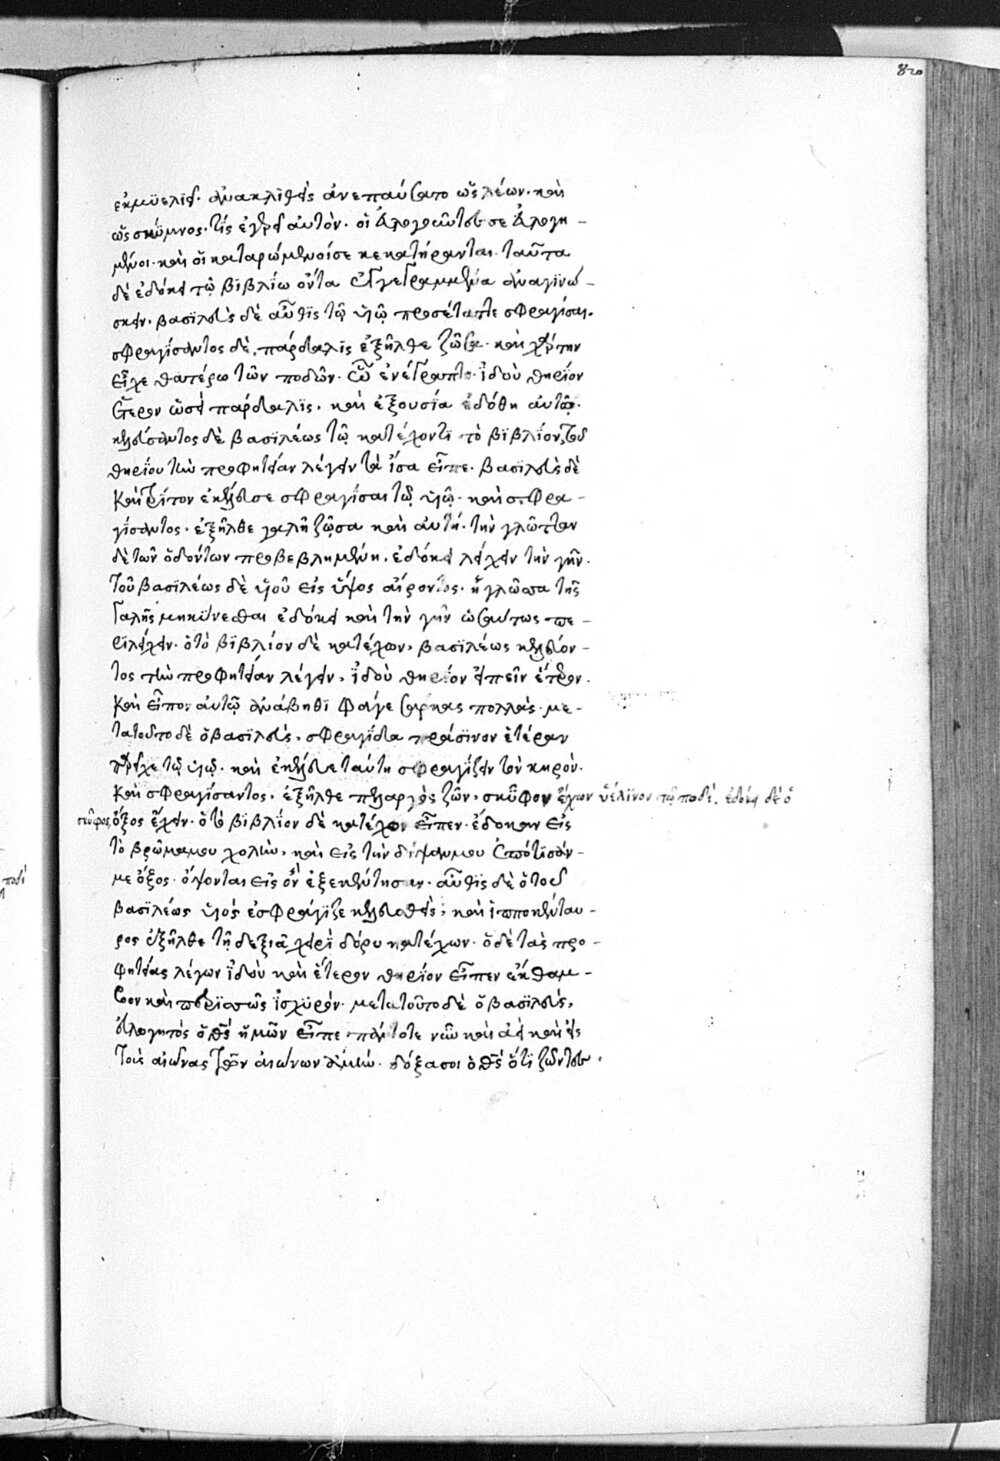 820
ἐκμϋελϊεῖ. ἀνακλϊθεὶς ἀνεπαύσατο ὡς λέων. καὶ
ὡς σκύμνος. τίς ἐγερεῖ αὐτὸν. οἱ εὐλογοῦντές σε εὐλογη -
μένοι. καὶ οἱ καταρώμενοί σε κεκατήρανται. ταῦτα
δὲ ἐδόκει τῷ βιβλίω ὄντα ἐγγεγραμμένα ἀναγϊνώ -
σκειν. βασϊλεὺς δὲ αὖθις τῷ ὑιῷ προσέταττε σφραγίσαι.
σφραγίσαντος δὲ, πάρδαλις ἐξῆλθε ζῶσα. καὶ χάρτην
εἶχε θατέρω τῶν ποδῶν. ὧ ἐνεγέγραπτο. ἰδοὺ θηρίον
ἕτερον ὡσεὶ πάρδαλϊς. καὶ ἐξουσία ἐδόθη αὐτῷ.
κελεύσαντος δὲ βασϊλέως τῷ κατέχοντϊ τὸ βϊβλΐον, τοῦ
θηρίου τὴν προφητείαν λέγειν τὰ ἴσα εἶπε. βασϊλεὺς δὲ
καὶ τρίτον ἐκέλευσε σφραγΐσαι τῷ ὑιῷ. καὶ σφρα -
γίσαντος. ἐξῆλθε γαλῆ ζῶσα καὶ αὐτή. τὴν γλῶτταν
δὲ τῶν ὀδόντων προβεβλημένη. ἐδόκει λείχειν τὴν γῆν.
τοῦ βασϊλέως δὲ ὑιοῦ εἰς ὕψος αἴροντος. ἡ γλῶσσα τῆς
γαλῆς μηκύνεσθαι ἐδόκει καὶ τὴν γῆν ὡσαύτως πε -
ριλείχειν. ὁ τὸ βϊβλίον δὲ κατέχων, βασϊλέως κελεύον -
τος τὴν προφητείαν λέγειν, ἰδοὺ θηρίον εἰπεῖν ἕτερον.
καὶ εἶπον αὐτῷ ἀνάβηθϊ φάγε σάρκας πολλάς. με -
τὰ τοῦτο δὲ ὁ βασϊλεὺς. σφραγῖδα πράσϊνον ἑτέραν
παρεῖχε τῷ ὑιῷ. καὶ ἐκέλευε ταύτη σφραγΐζειν τὸν κηρόν.
καὶ σφραγίσαντος, ἐξῆλθε πελαργὸς ζῶν, σκῦφον ἔχων ὑέλϊνον τῷ ποδί. ἐδόκει δὲ ὁ
σκῦφος ὄξος ἔχειν. ὁ τὸ βϊβλΐον δὲ κατέχων εἶπεν. ἔδωκαν εἰς
τὸ βρῶμα μου χολὴν, καὶ εἰς τὴν δίψαν μου ἐπότϊσάν -
με ὄξος. ὄψονται εἰς ὃν ἐξεκέντησαν. αὖθϊς δὲ ὁ τοῦ
βασϊλέως ὑιὸς ἐσφράγϊζε κελευσθεὶς, καὶ ἱπποκένταυ -
ρος ἐξῆλθε τῇ δεξιᾷ χειρὶ δόρυ κατέχων. ὁ δὲ τὰς προ -
φητείας λέγων ἰδοὺ καὶ ἕτερον θηρίον εἶπεν ἔκθαμ -
βον καὶ περϊσσῶς ἰσχϋρόν. μετὰ τοῦτο δὲ ὁ βασϊλεὺς,
εὐλογητὸς ὁ θς ἡμῶν εἶπε πάντοτε νῦν καὶ ἀεὶ καὶ εἰς
τοὺς αἰώνας τῶν αἰώνων ἀμήν. δόξα σοι ὁ θς ὅτϊ ζῶντες.